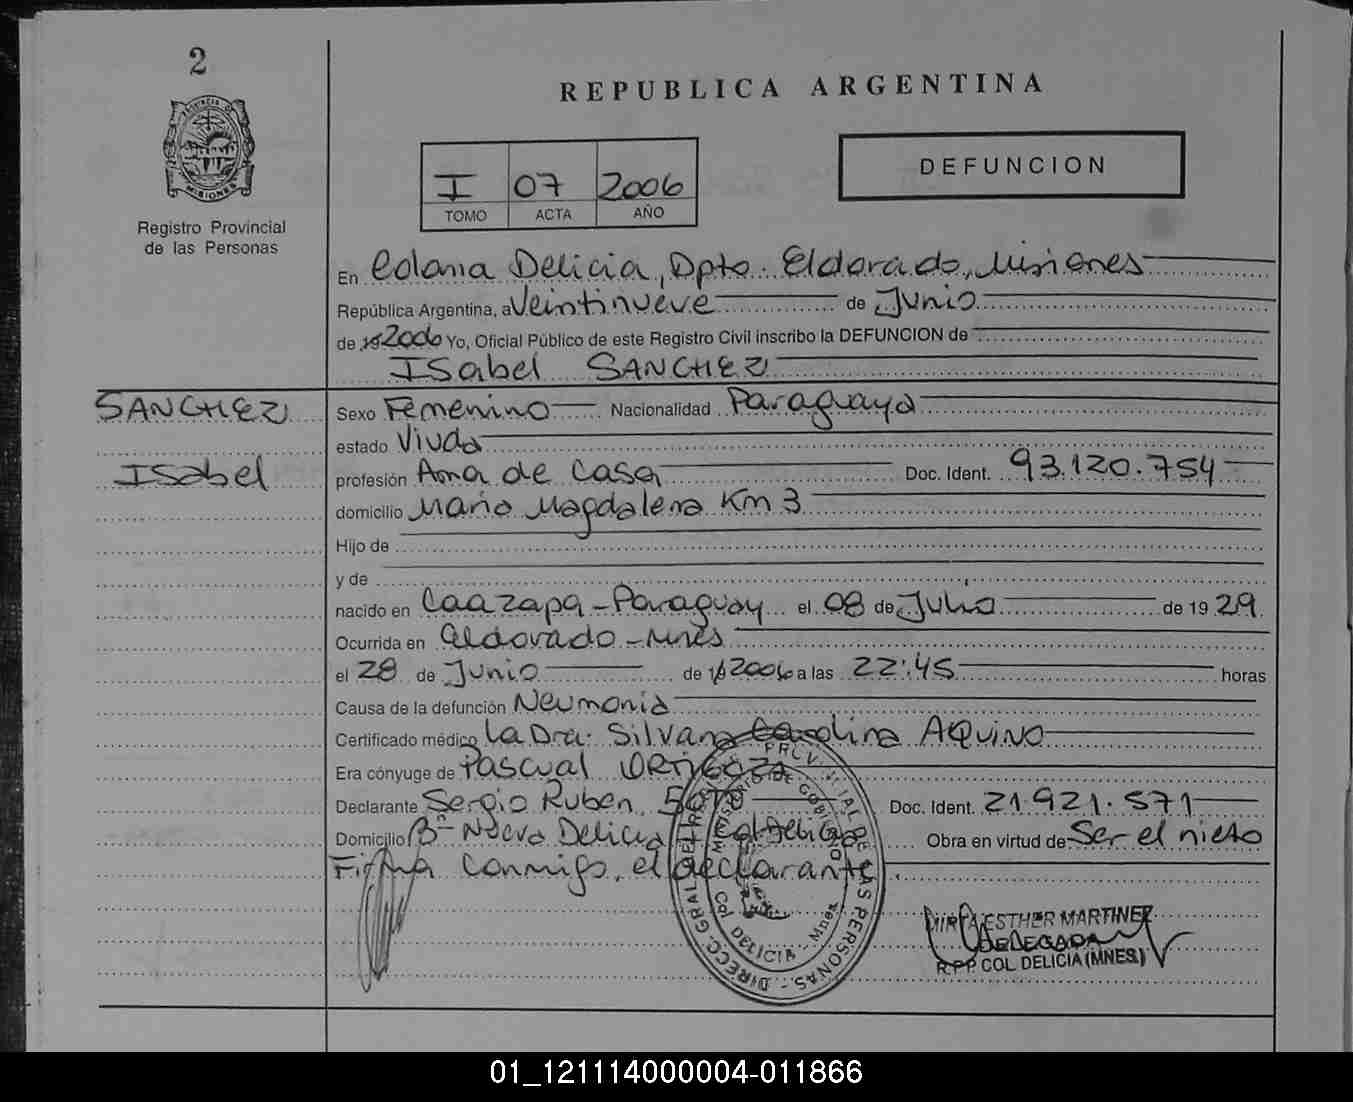 2
REPUBLICA ARGENTINA
PROVINCIA DE
MISIONES
DEFUNCION
I 07 2006
TOMO ACTA AÑO
Registro Provincial
de las Personas
En Colonia Delicia, Dpto. Eldorado, Misiones
República Argentina, a Veintinueve de Junio
de 2006 Yo, Oficial Público de este Registro Civil inscribo la DEFUNCION de
ISabel SANCHEZ
SANCHEZ
ISabel
Sexo Femenino Nacionalidad Paraguaya
estado Viuda
profesión Ama de Casa Doc. Ident. 93.120.754
domicilio Maria Magdalena Km 3
Hijo de
y de
nacido en Caazapa - Paraguay el 08 de Julio de 19 29
Ocurrida en Eldorado - Mnes
el 28 de Junio de 2006 a las 22:45 horas
Causa de la defunción Neumonia
Certificado médico La Dra. Silvana Carolina AQuiNO
Era cónyuge de PASCUAL ORTIGOZA
Declarante Sergio Ruben SOTO Doc. Ident. 21.921.571
Domicilio Bº Nueva Delicia - Col. Delicia Obra en virtud de Ser el nieto
Firma Conmigo, el declarante.
DIRECC. GRAL. DEL REG. PROVINCIAL DE LAS PERSONAS
MINISTERIO DE GOBIERNO
COL. DELICIA - Mnes
MIRTA ESTHER MARTINEZ
DELEGADA
R.P.P. COL. DELICIA (MNES.)
01_121114000004-011866